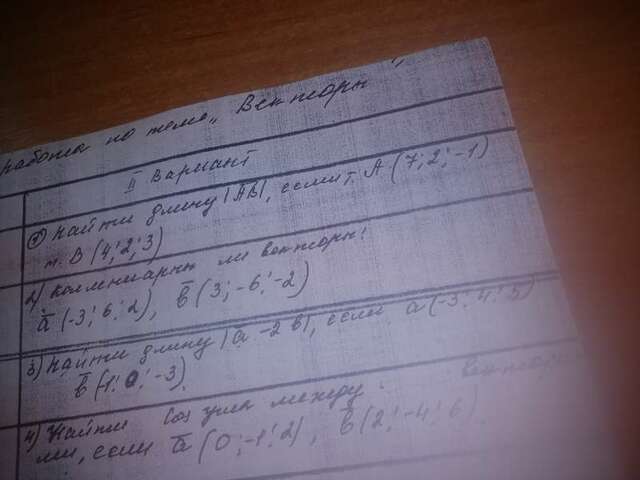 работа по теме „Векторы"
II Вариант
1) Найти длину |AB|, если т. A (7; 2; -1)
т. B (4; 2; 3)
2) Коллинеарны ли векторы:
a (-3; 6; 2), b (3; -6; -2)
3) Найти длину |a - 2b|, если a (-3; 4; 5)
b (-1; 0; -3)
4) Найти Cos угла между векторa
ми, если a (0; -1; 2), b (2; -4; 6)